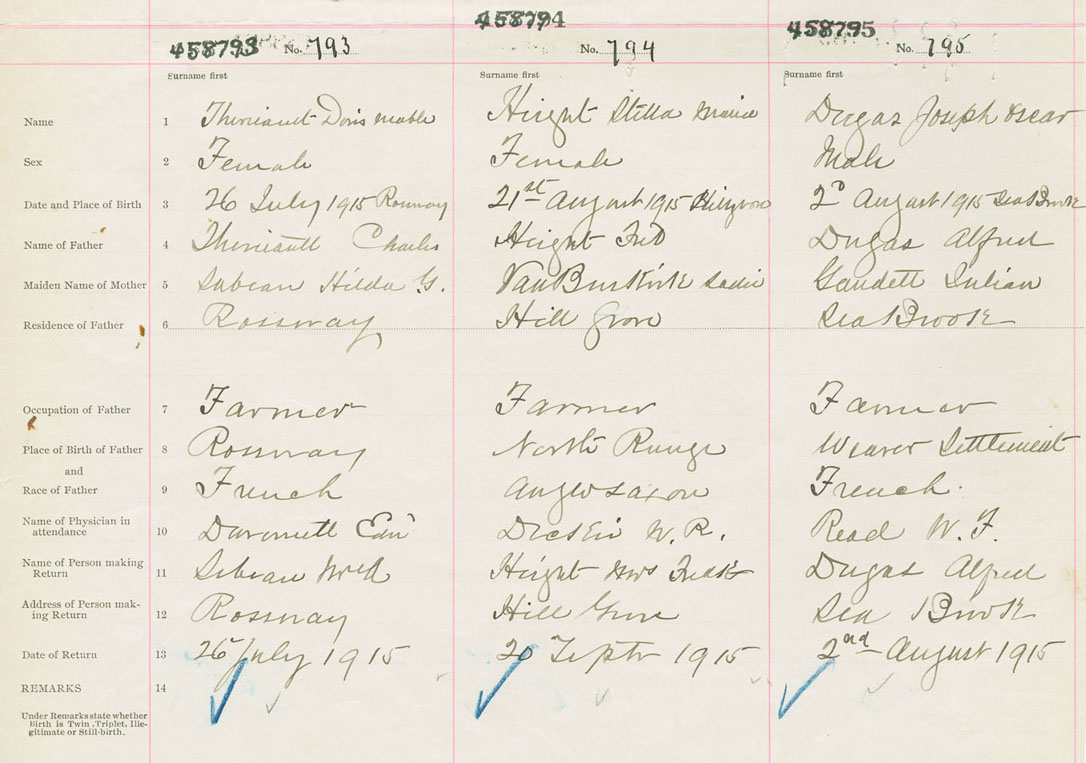 458793 No. 793 458794 No. 794 458795 No. 795
Surname first Surname first Surname first
Name 1 Theriault Doris Hight Stella Marie Dugas Joseph Oscar
Sex 2 Female Female Male
Date and Place of Birth 3 26 July 1915 Rossway 21st August 1915 2d August 1915 Sea Brook
Name of Father 4 Theriault Charles Hight Fred Dugas Alfred
Maiden Name of Mother 5 Sabean Hilda G. VanBuskirk Sadie Gaudett Julian
Residence of Father 6 Rossway Hill Grove Sea Brook
Occupation of Father 7 Farmer Farmer Farmer
Place of Birth of Father 8 Rossway North Range Weaver Settlement
and
Race of Father 9 French Anglo Saxon French.
Name of Physician in
attendance 10 W. R. Read W. F.
Name of Person making
Return 11 Sabean Hight Mrs Fredk Dugas Alfred
Address of Person mak-
ing Return 12 Rossway Hill Grove Sea Brook
Date of Return 13 26 July 1915 20 Septr 1915 2nd August 1915
REMARKS 14
Under Remarks state whether
Birth is Twin, Triplet, Ille-
gitimate or Still-birth.